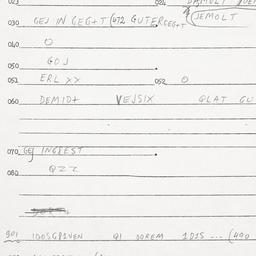 030 GEJ IN GEG+T (472 GUTERGEG+T
JEMOLT
040 O
050 GOJ
051 ERL XX 052 O
060 DEMID+ VEJSIX QLAT GU
070 GEJ INGREST
080 QZZ
901 IDOSGPIVEN QI DOREM 1D15 ... (490